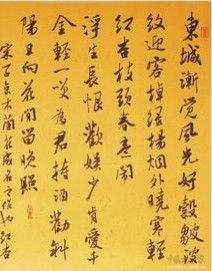 東城漸覺風光好縠皺波
紋迎客棹綠楊烟外曉寒輕
紅杏枝頭春意鬧
浮生長恨歡娛少肯愛千
金輕一笑為君持酒勸斜
陽且向花間留晚照
宋子京木蘭花